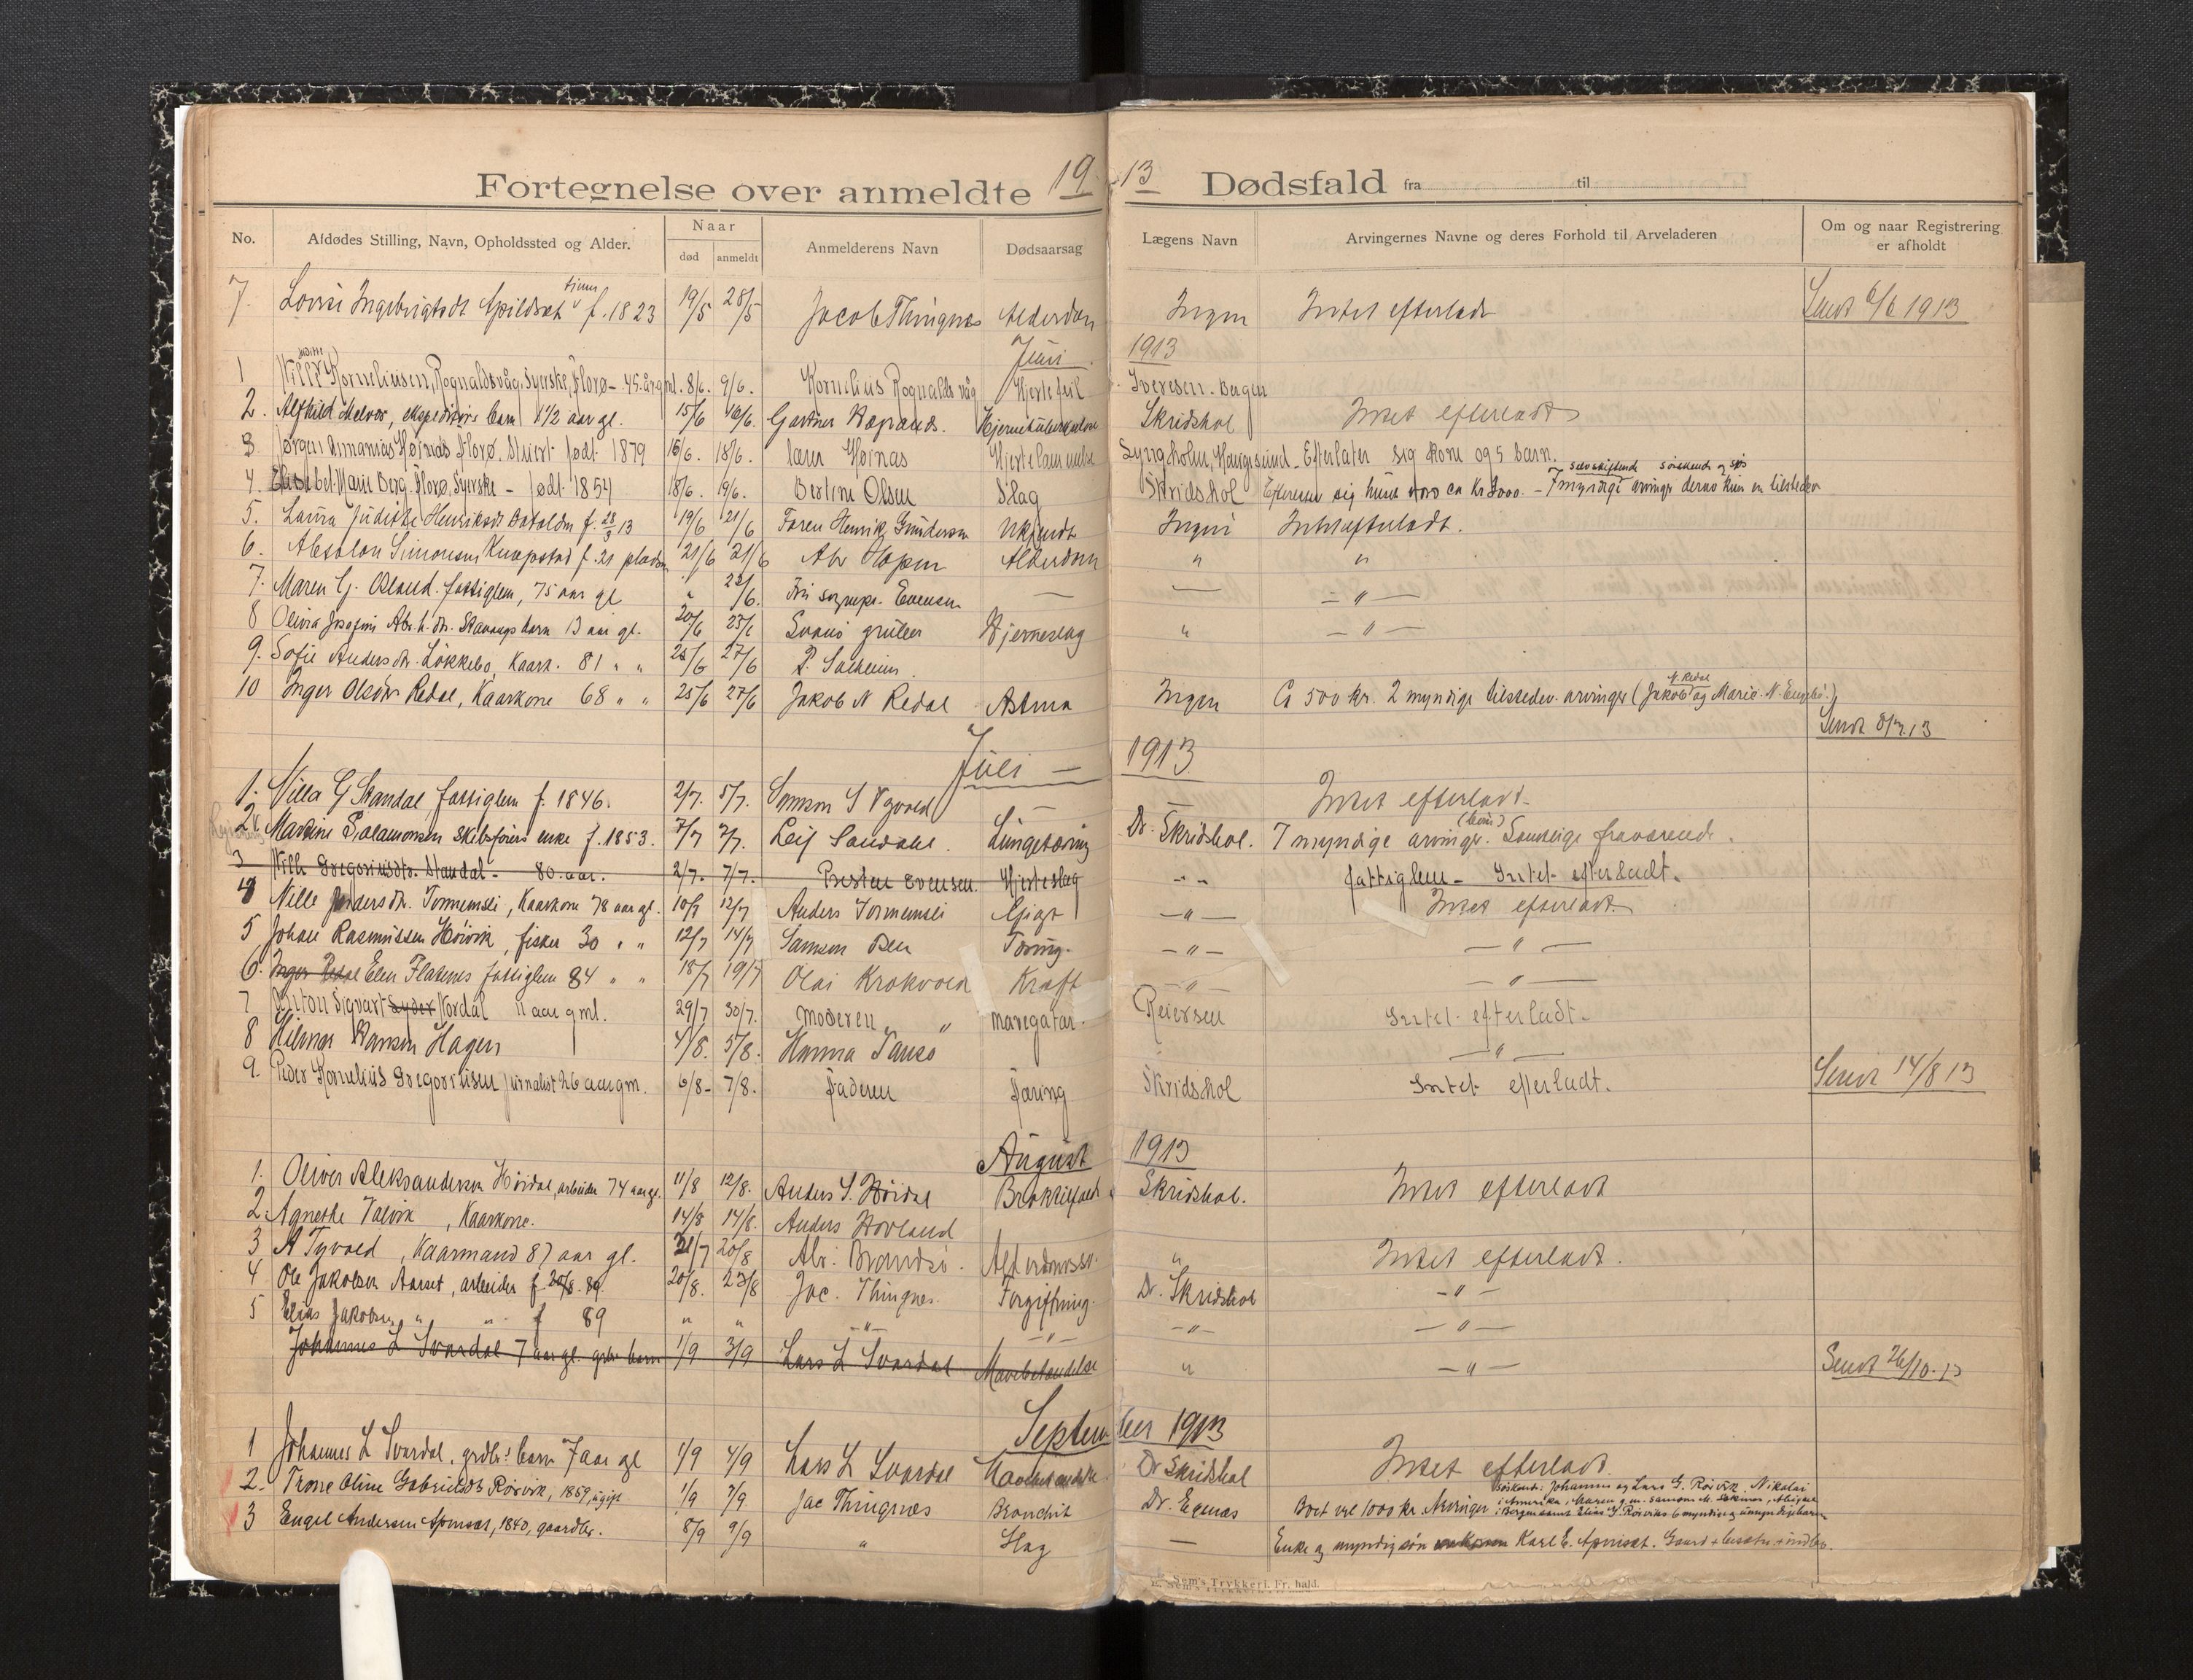 Fortegnelse over anmeldte 1913 Dødsfald fra til
No. Afdødes Stilling, Navn, Opholdssted og Alder. Naar Anmelderens Navn Dødsaarsag Lægens Navn Arvingernes Navne og deres Forhold til Arveladeren Om og naar Registrering er afholdt
død anmeldt
7. Lovise Ingebrigtsdt f. 1823 19/5 28/5 Jacob Thingnes Alderdom Ingen Intet efterladt Sendt 6/6 1913
Juni 1913
1 Korneliusen, Rognaldsvåg, Syerske, Florø - 45 år gml. 8/6. 9/6. Kornelius Rognaldsvåg Hjertefeil Iversen. Bergen
2. Alfhild Melvær, expeditørs barn 1 1/2 aar gl. 15/6 16/6. Gartner Hjernetuberkulose Skridshol Intet efterladt
3 Jørgen Annanias Høinas Florø. født 1879 15/6. 18/6. Høinas Hjertelammelse Lyngholm, Haugesund - Efterlater sig kone og 5 barn.
4. Elisabet Marie Berg. Florø, Syerske - født 1854 18/6. 19/6. Bertine Olsen Slag Skridshol Efterlater sig huus ca Kr 3000. - 7 myndige arvinger deraf kun en tilstede
5. Laura Judithe Henriksdt Batalden f. 28/3 13 19/6 21/6 Faren Henrik Gundersen Ukjendt Ingen Intet efterladt.
6. Absalon Simonsen Knapstad f. 21 21/6 21/6 Abr Hopen Alderdom " "
7. Maren G. Øslund. fattiglem, 75 aar gl " 22/6. Fru sognepr. Evensen — — — " —
8 Olivia Josefine Abr.h. dtr. Stavangs barn 13 aar gl. 20/6 23/6 Svanø gruber Hjerneslag " — " —
9. Sofie Andersdtr. Løkkebø, Kaark. 81 " " 25/6 27/6 P. Solheim
10 Inger Olsdtr Redal, Kaarkone 68 " " 25/6 27/6 Jakob N Redal Astma Ingen Ca 500 kr. 2 myndige tilstedev. arvinger (Jakob N. Redal og Marie N. Engebø.)
Sendt 8/7 13
Juli — 1913
1. Nilla G Standal fattiglem f. 1846. 2/7. 5/7. Samson S Tyvold — — Intet efterladt.
2. Martine Salamonsen skibsførers enke f. 1853. 7/7 7/7. Leif Sandahl. Lungetæring Dr. Skridshol. 7 myndige arvinger (børn). Samtlige fraværende.
3 Nille Gregoriusdtr. Standal - 80 aar. 2/7. 7/7. Presten Evensen. Hjerteslag - - fattiglem - Intet efterladt.
4 Nille Andersdtr. Tonnemsli, Kaarkone 78 aar gl. 10/7 12/7 Anders Tonnemsli Gigt — " — Intet efterladt.
5 Johan Rasmussen Høivik, fisker 30 " " 12/7 14/7 Samson Øen Tæring. — " — — " —
6. Inger Redal Elen Flatenes fattiglem 84 " " 18/7 19/7 Olai Krokvold Kræft — " — — " —
7 Anton Sigvart Nordal 11 aar gml. 29/7 30/7. Moderen " Mavegatar. Reiersen Intet efterladt.
8 Hilmar Hansen Hagen 4/8. 5/8. Hanna Tansø — " —
9. Peder Kornelius Gregoriusen journalist 26 aar gm. 6/8 - 7/8. Faderen Tæring Skridshol Intet efterladt. Sendt 14/8 13
August 1913
1. Oliver Aleksandersen Høidal, arbeider 74 aar gl. 11/8 12/8. Anders S. Høidal Brokktilfælde Skridshol. Intet efterladt
2. Agnethe Talvik, Kaarkone. 14/8 14/8. Anders Hovland
3 A Tyvold, Kaarmand 87 aar gl. 31/7 20/8 Abr. Brandsø. Alderdomssv. " Intet efterladt.
4 Ole Jakobsen Aarset, arbeider f. 20/8. 89. 20/8. 23/8 Jac. Thingnes. Forgiftning. Dr. Skridshol - " -
5 Elias Jakobsen " " f 89 " " — " — — " — — " — — " —
Johannes L Svardal 7 aar gl. grbr. barn 1/9 3/9 Lars L Svardal Mavebetændelse " — " — Sendt 26/10. 13
September 1913
1 Johannes L Svardal, grdbr's barn 7 aar gl 1/9 4/9 Lars L Svardal Mavebetændelse Dr Skridshol Intet efterladt.
2. Trone Oline Gabrielsdt Rørvik, 1859, ugift 1/9 7/9 Jac Thingnæs Bronchit Dr. Egenæs Boet vel 1000 kr. Arvinger: Søskend. Johannes og Lars G. Rørvik, Nikolai i Amerika, Maren g.m. Samson M. , i Bergen samt Elias G. Rørviks 6 myndige og umyndige barn
3 Engel Andersen Apenset, 1840, gaardbr. 8/9 9/9 " Slag — Enke og myndig søn Karl E. Apenset. Gaard + besætn. + indbo.
E. Sem's Trykkeri, Fr.hald.